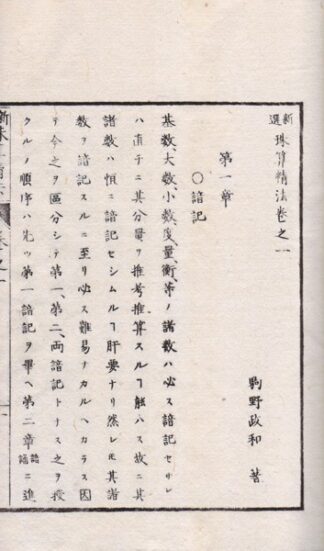 新選 珠算精法卷之一
駒野政和 著
第一章
〇諳記
基数大数、小数度、量、衡、等ノ諸数ハ必ス諳記セサレ
ハ直チニ其分量ヲ推考推算スルヿ能ハス故ニ其
諸数ハ恒ニ諳記セシムルヿ肝要ナリ然レ𪜈其諸
数ヲ諳記スルニ至リ必ス難易ナカルヘカラス因
テ今之ヲ區分シテ第一、第二、両諳記トナス之ヲ授
クルノ順序ハ先ツ第一諳記ヲ畢ヘ第二章諳誦ニ進